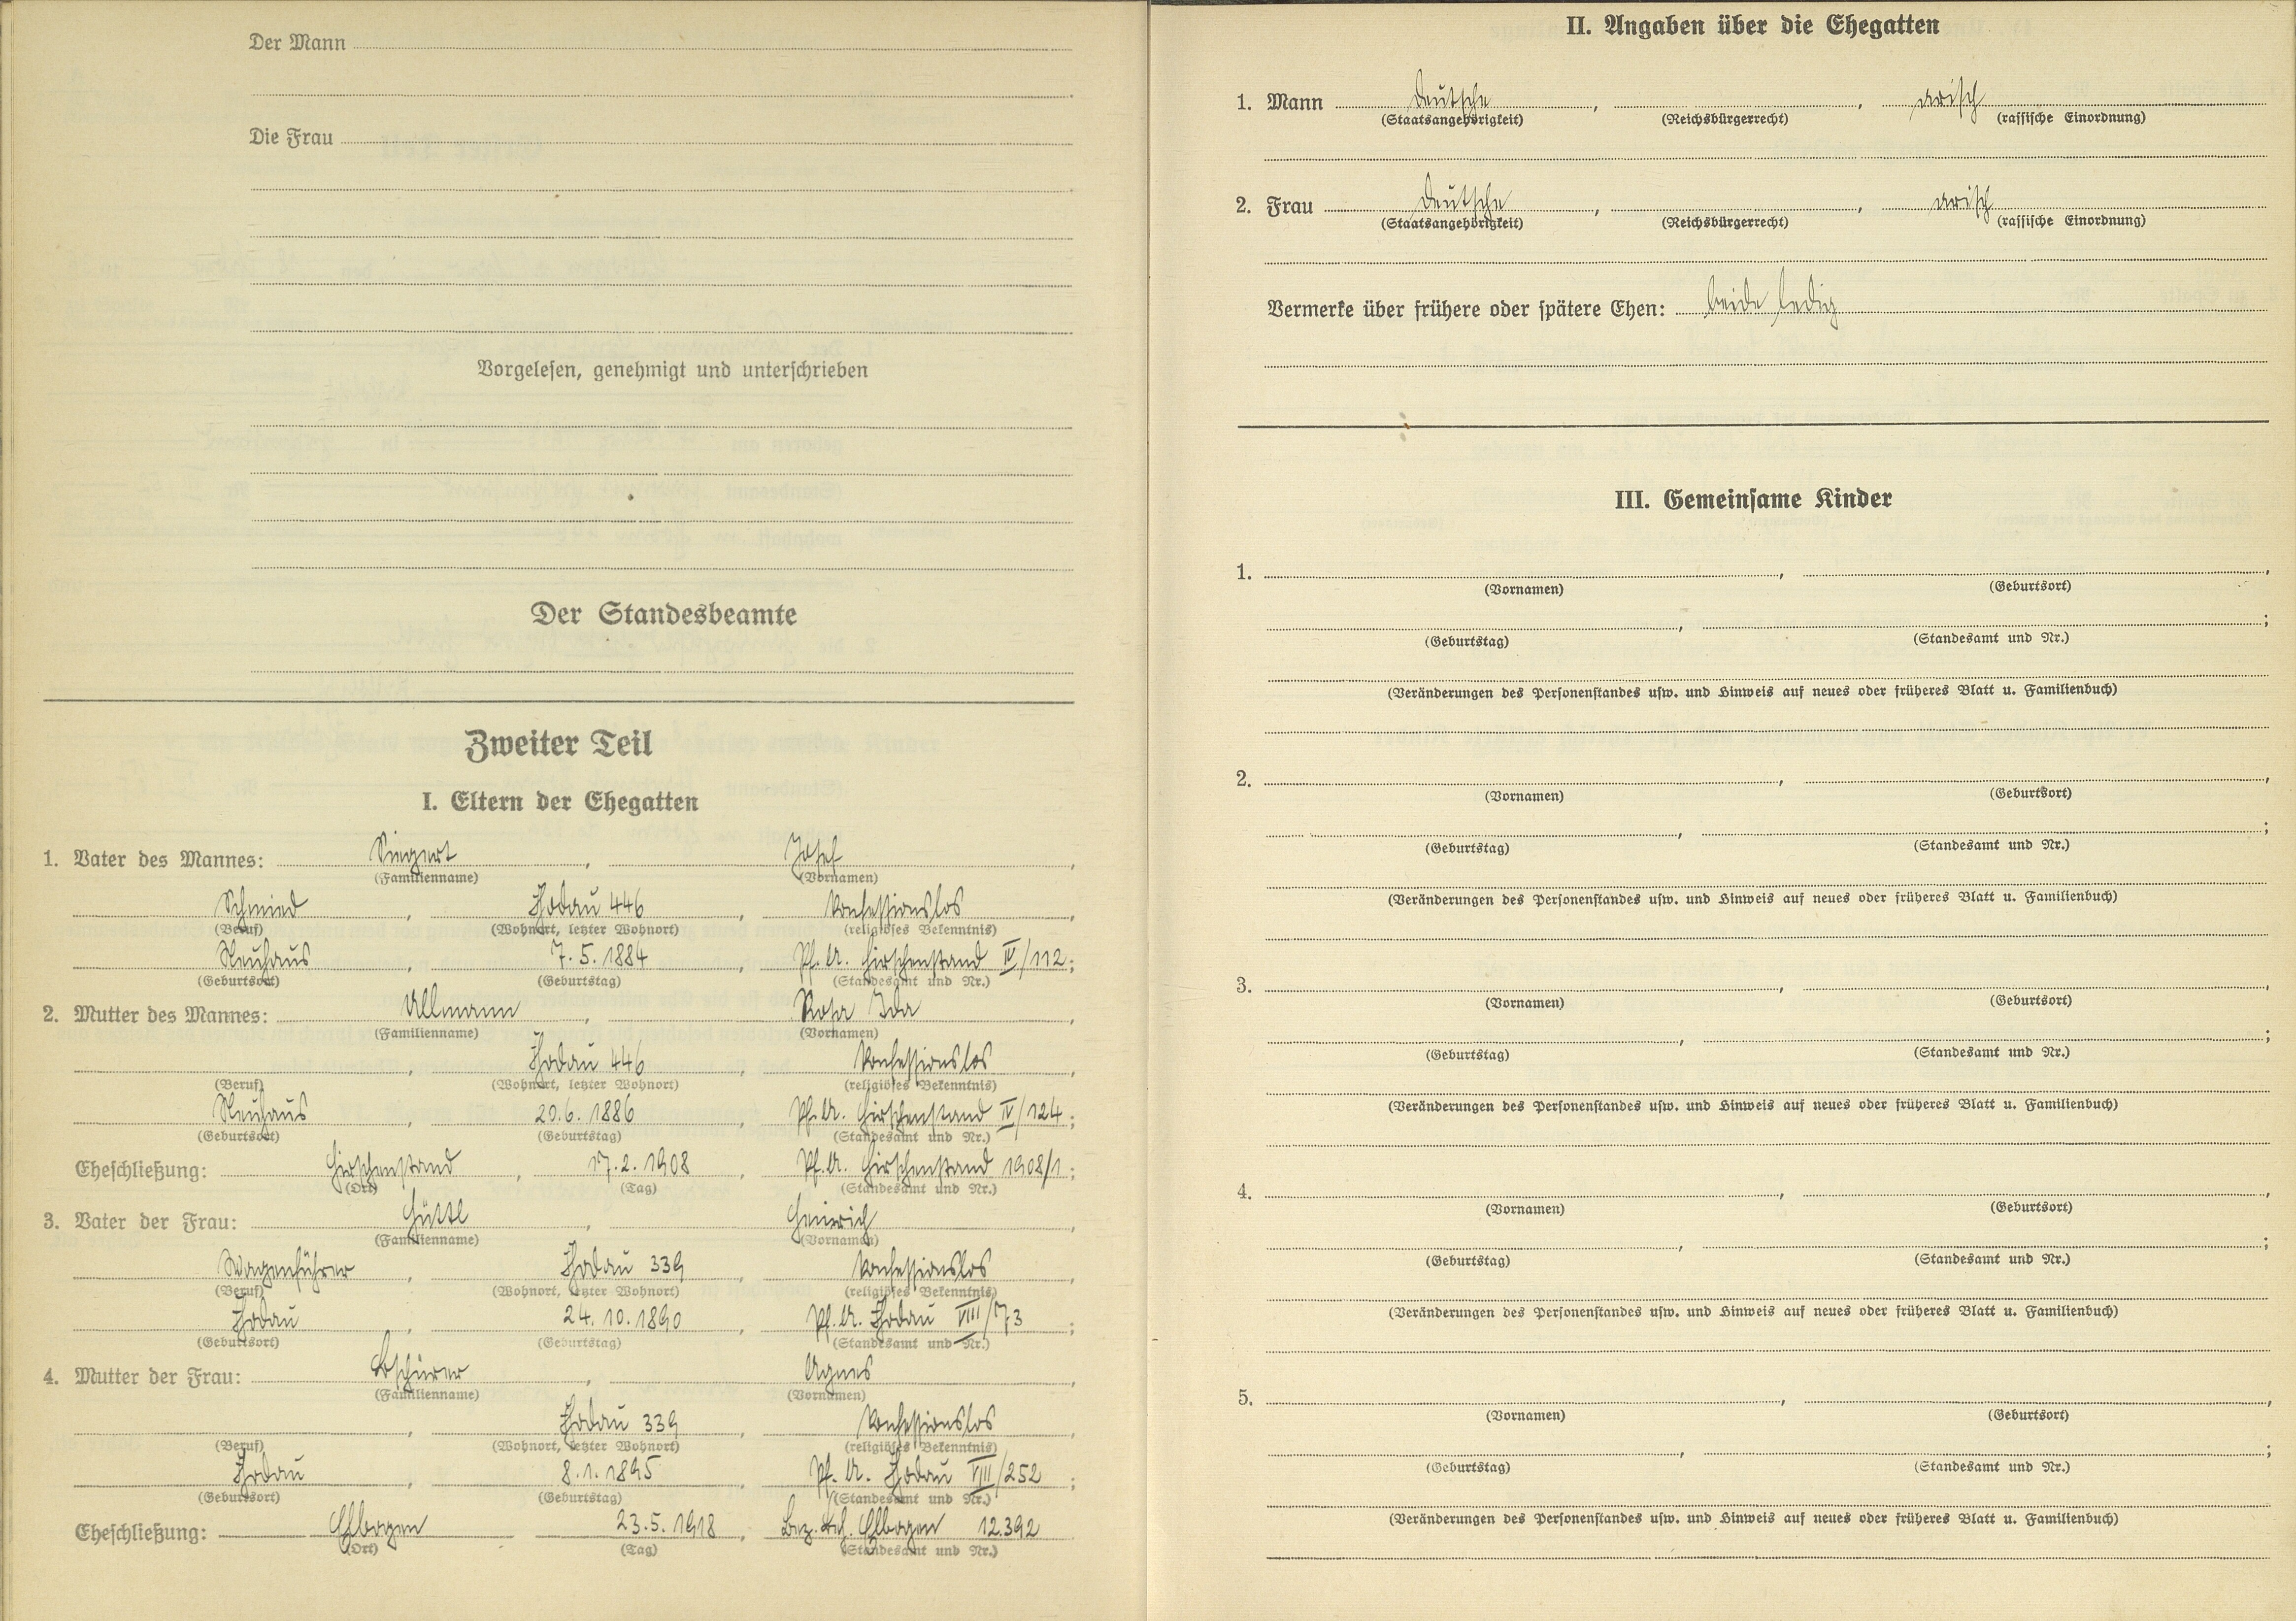 Der Mann
Die Frau
Vorgelesen, genehmigt und unterschrieben
Der Standesbeamte
Zweiter Teil
I. Eltern der Ehegatten
1. Vater des Mannes: Siegert, Josef,
(Familienname) (Vornamen)
Schmied, Chodau 446, konfessionslos,
(Beruf) (Wohnort, letzter Wohnort) (religiöses Bekenntnis)
Neuhaus, 7.5.1884, Pf. A. Hirschenstand IV/112;
(Geburtsort) (Geburtstag) (Standesamt und Nr.)
2. Mutter des Mannes: Ullmann, Rosa Ida,
(Familienname) (Vornamen)
, Chodau 446, konfessionslos,
(Beruf) (Wohnort, letzter Wohnort) (religiöses Bekenntnis)
Neuhaus, 20.6.1886, Pf. A. Hirschenstand IV/124;
(Geburtsort) (Geburtstag) (Standesamt und Nr.)
Eheschließung: Hirschenstand, 17.2.1908, Pf. A. Hirschenstand 1908/1;
(Ort) (Tag) (Standesamt und Nr.)
3. Vater der Frau: Hüttl, Heinrich,
(Familienname) (Vornamen)
Wagenführer, Chodau 339, konfessionslos,
(Beruf) (Wohnort, letzter Wohnort) (religiöses Bekenntnis)
Chodau, 24.10.1890, Pf. A. Chodau VIII/73;
(Geburtsort) (Geburtstag) (Standesamt und Nr.)
4. Mutter der Frau: , Agnes,
(Familienname) (Vornamen)
, Chodau 339, konfessionslos,
(Beruf) (Wohnort, letzter Wohnort) (religiöses Bekenntnis)
Chodau, 8.1.1895, Pf. A. Chodau VIII/252;
(Geburtsort) (Geburtstag) (Standesamt und Nr.)
Eheschließung: Elbogen 23.5.1918, Bez. Elbogen 12.392
(Ort) (Tag) (Standesamt und Nr.)
II. Angaben über die Ehegatten
1. Mann deutsche, , arisch
(Staatsangehörigkeit) (Reichsbürgerrecht) (rassische Einordnung)
2. Frau deutsche, , arisch
(Staatsangehörigkeit) (Reichsbürgerrecht) (rassische Einordnung)
Vermerke über frühere oder spätere Ehen: beide ledig
III. Gemeinsame Kinder
1. , ,
(Vornamen) (Geburtsort)
, ;
(Geburtstag) (Standesamt und Nr.)
(Veränderungen des Personenstandes usw. und Hinweis auf neues oder früheres Blatt u. Familienbuch)
2. , ,
(Vornamen) (Geburtsort)
, ;
(Geburtstag) (Standesamt und Nr.)
(Veränderungen des Personenstandes usw. und Hinweis auf neues oder früheres Blatt u. Familienbuch)
3. , ,
(Vornamen) (Geburtsort)
, ;
(Geburtstag) (Standesamt und Nr.)
(Veränderungen des Personenstandes usw. und Hinweis auf neues oder früheres Blatt u. Familienbuch)
4. , ,
(Vornamen) (Geburtsort)
, ;
(Geburtstag) (Standesamt und Nr.)
(Veränderungen des Personenstandes usw. und Hinweis auf neues oder früheres Blatt u. Familienbuch)
5. , ,
(Vornamen) (Geburtsort)
, ;
(Geburtstag) (Standesamt und Nr.)
(Veränderungen des Personenstandes usw. und Hinweis auf neues oder früheres Blatt u. Familienbuch)